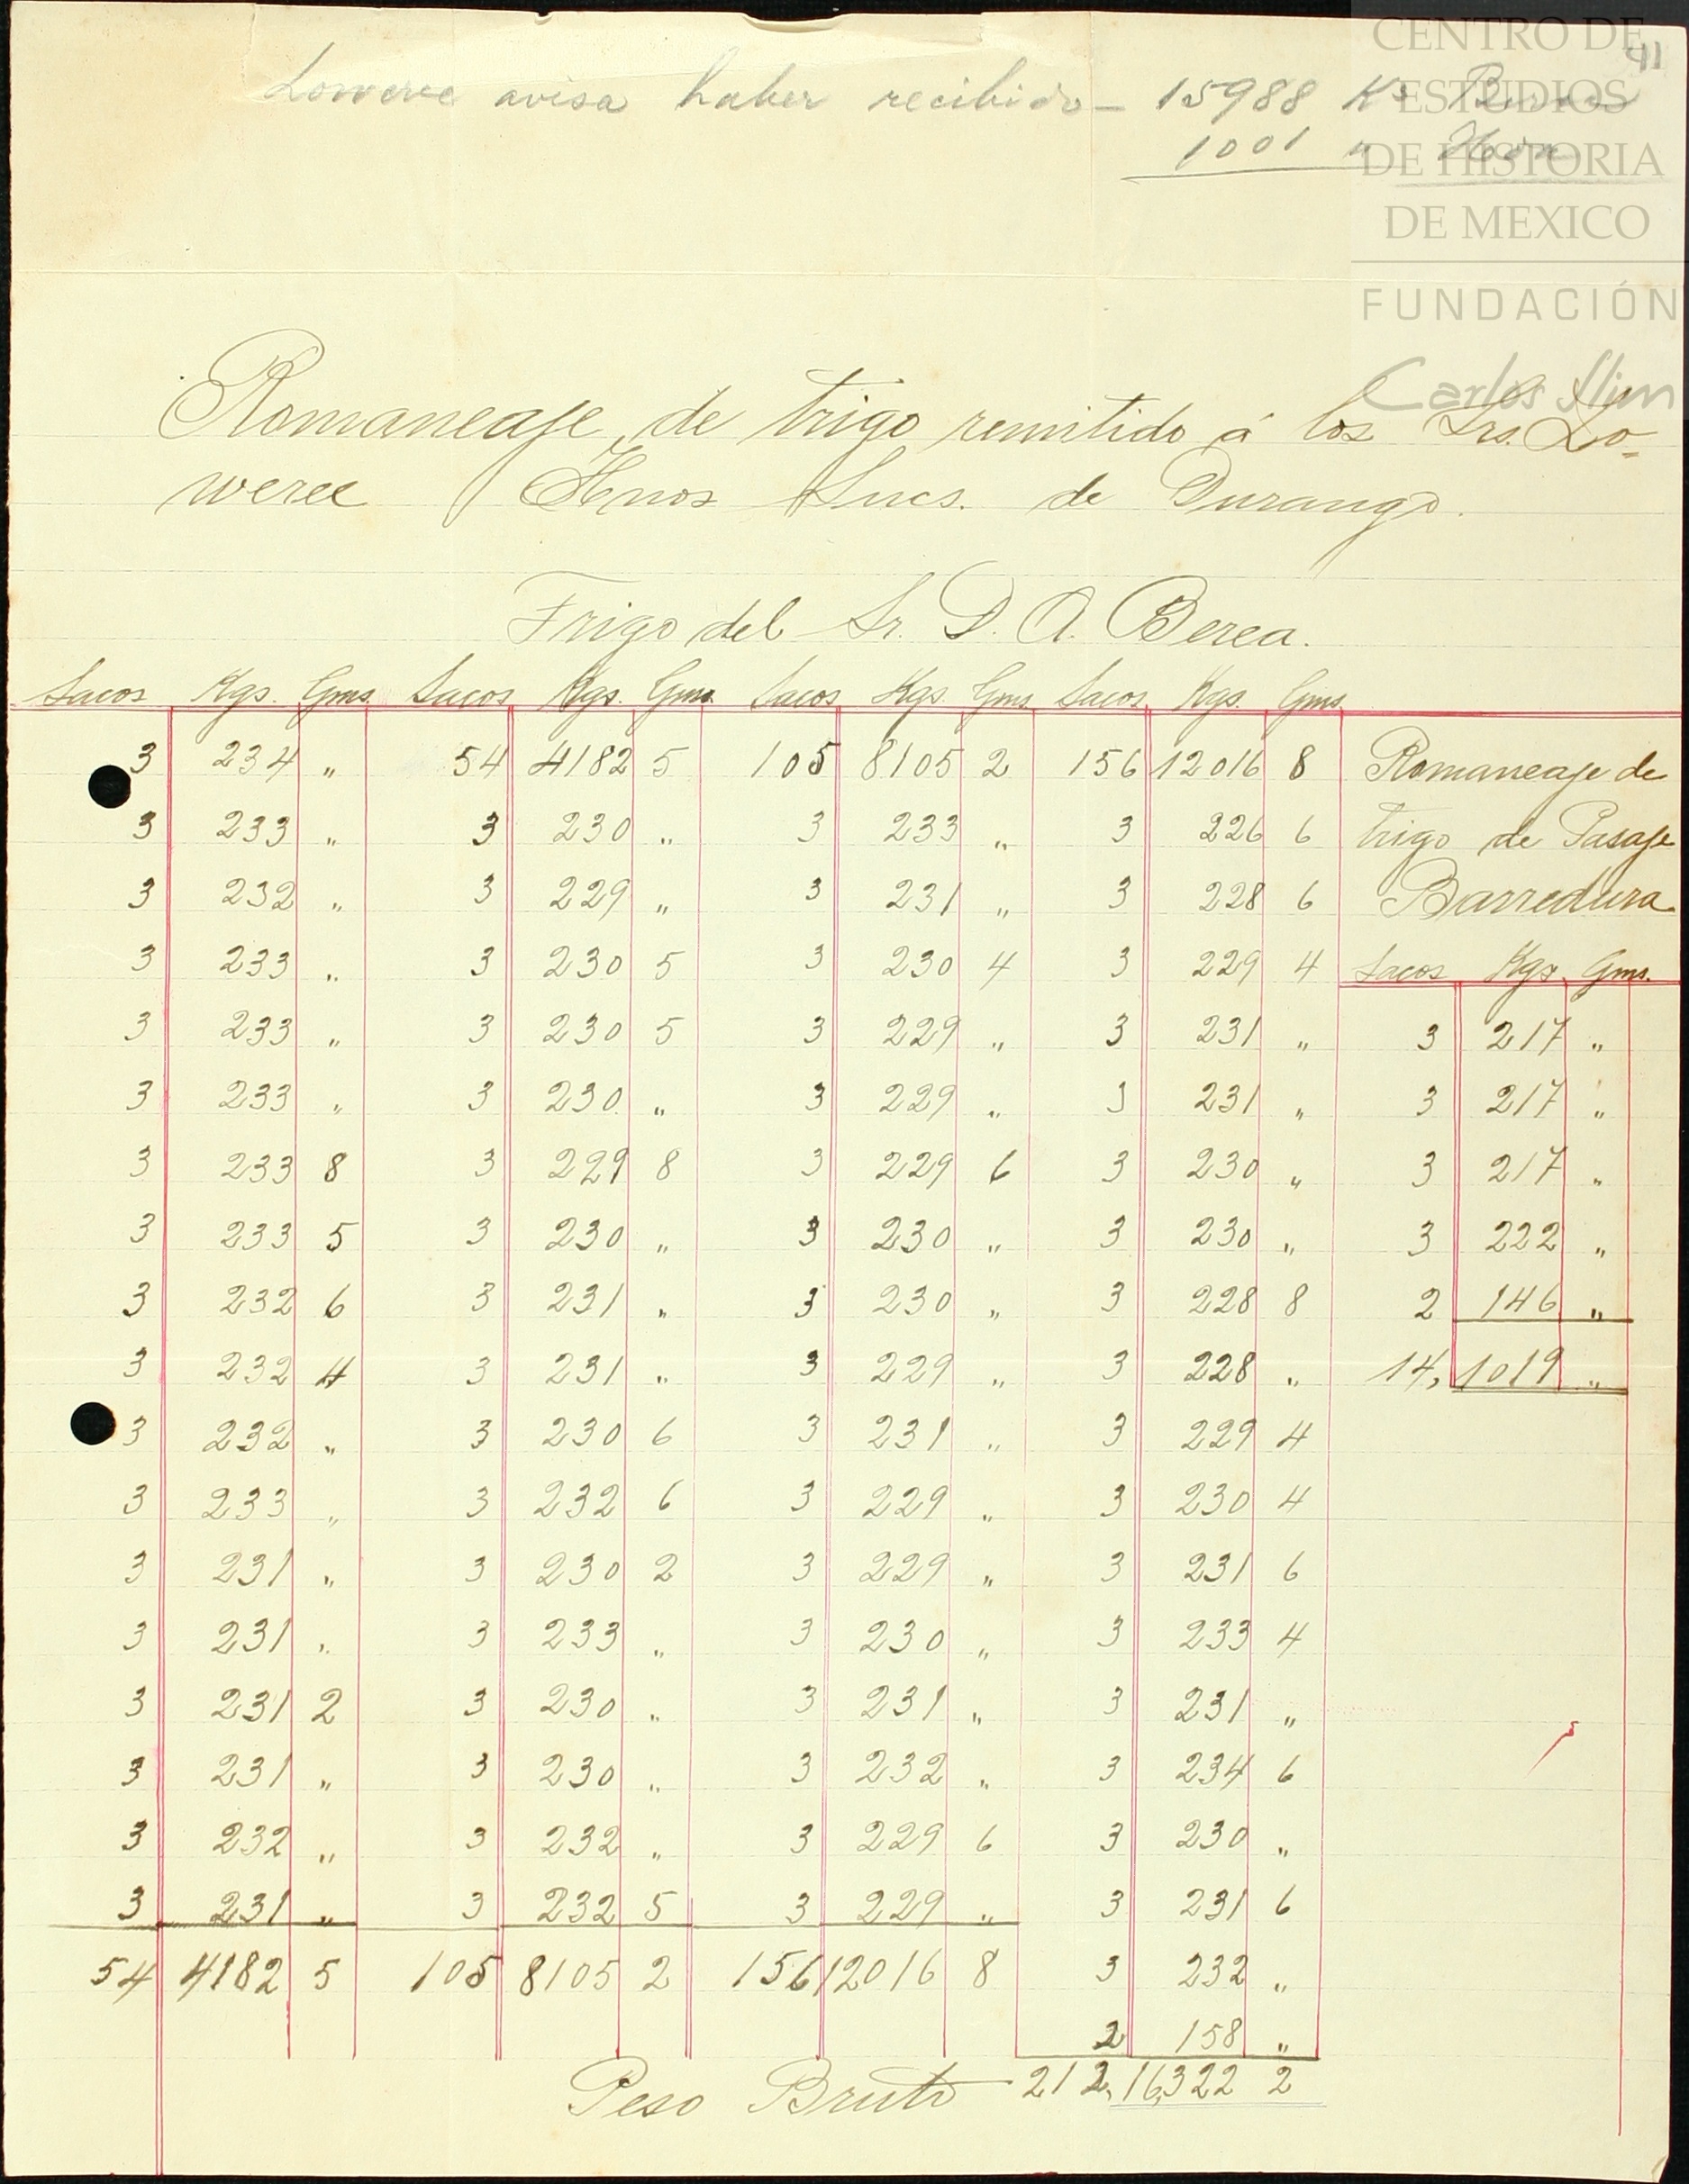 CENTRO DE
ESTUDIOS
DE HISTORIA
DE MEXICO
FUNDACIÓN
Carlos Slim
91
Loweree avisa haber recibido — 15988 Ks Berea
1001 "
Romaneaje de trigo remitido á los Srs. Lo-
weree Hnos Sucs. de Durango.
Trigo del Sr. D. A. Berea.
Sacos Kgs. Gms. Sacos Kgs. Gms. Sacos Kgs. Gms. Sacos Kgs. Gms.
3 234 " 54 4182 5 105 8105 2 156 12016 8 Romaneaje de
3 233 " 3 230 " 3 233 " 3 226 6 trigo de Pasaje
3 232 " 3 229 " 3 231 " 3 228 6 Barredura
3 233 " 3 230 5 3 230 4 3 229 4 Sacos Kgs. Gms.
3 233 " 3 230 5 3 229 " 3 231 " 3 217 "
3 233 " 3 230 " 3 229 " 3 231 " 3 217 "
3 233 8 3 229 8 3 229 6 3 230 " 3 217 "
3 233 5 3 230 " 3 230 " 3 230 " 3 222 "
3 232 6 3 231 " 3 230 " 3 228 8 2 146 "
3 232 4 3 231 " 3 229 " 3 228 " 14, 1019 "
3 232 " 3 230 6 3 231 " 3 229 4
3 233 " 3 232 6 3 229 " 3 230 4
3 231 " 3 230 2 3 229 " 3 231 6
3 231 " 3 233 " 3 230 " 3 233 4
3 231 2 3 230 " 3 231 " 3 231 "
3 231 " 3 230 " 3 232 " 3 234 6
3 232 " 3 232 " 3 229 6 3 230 "
3 231 " 3 232 5 3 229 " 3 231 6
54 4182 5 105 8105 2 156 12016 8 3 232 "
2 158 "
Peso Bruto 212, 16,322 2